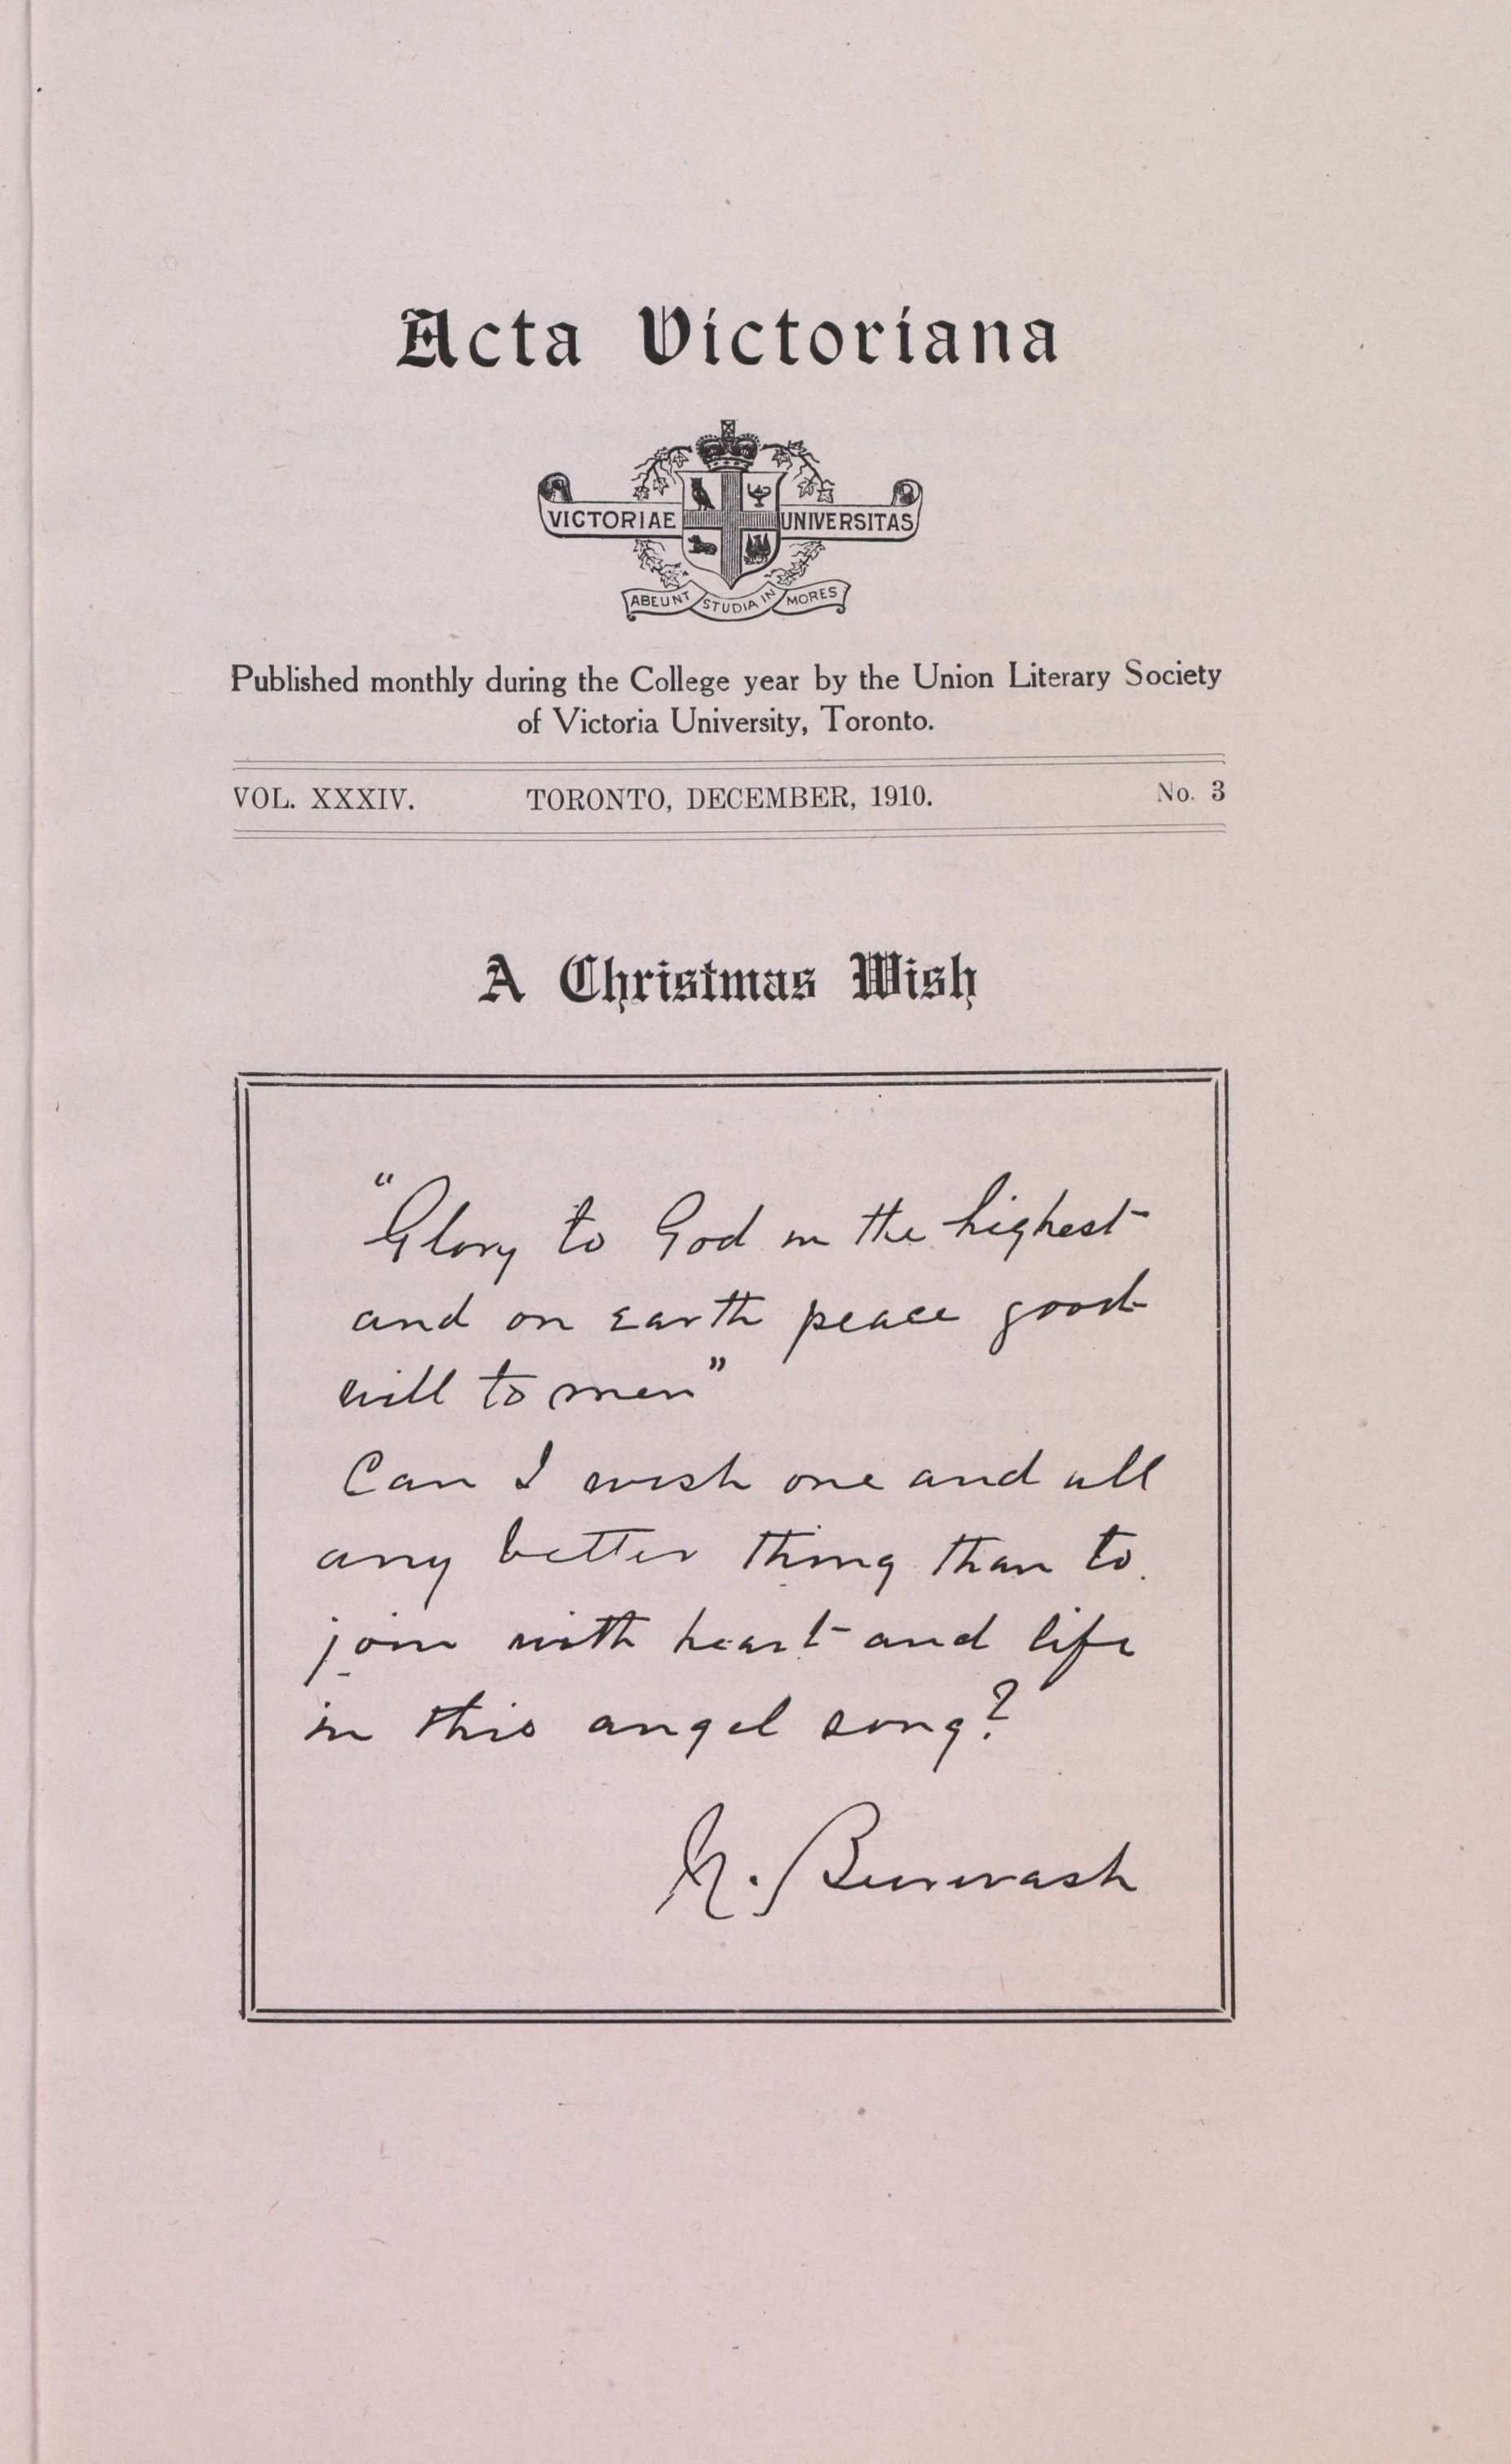 Acta Victoriana
VICTORIAE UNIVERSITAS
ABEUNT STUDIA IN MORES
Published monthly during the College year by the Union Literary Society
of Victoria University, Toronto.
VOL. XXXIV. TORONTO, DECEMBER, 1910. No. 3
A Christmas Wish
"Glory to God in the highest
and on earth peace good
will to men"
Can I wish one and all
any better thing than to
join with heart and life
in this angel song?
N. Burwash